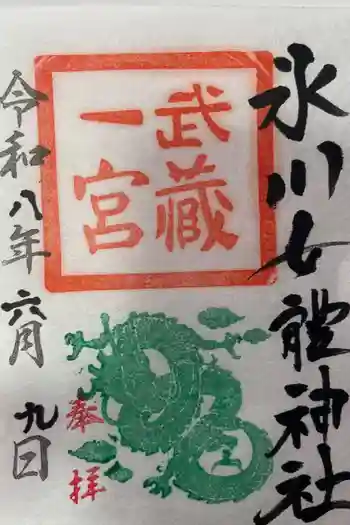 氷川女體神社
武蔵
一宮
奉拝
令和八年六月九日